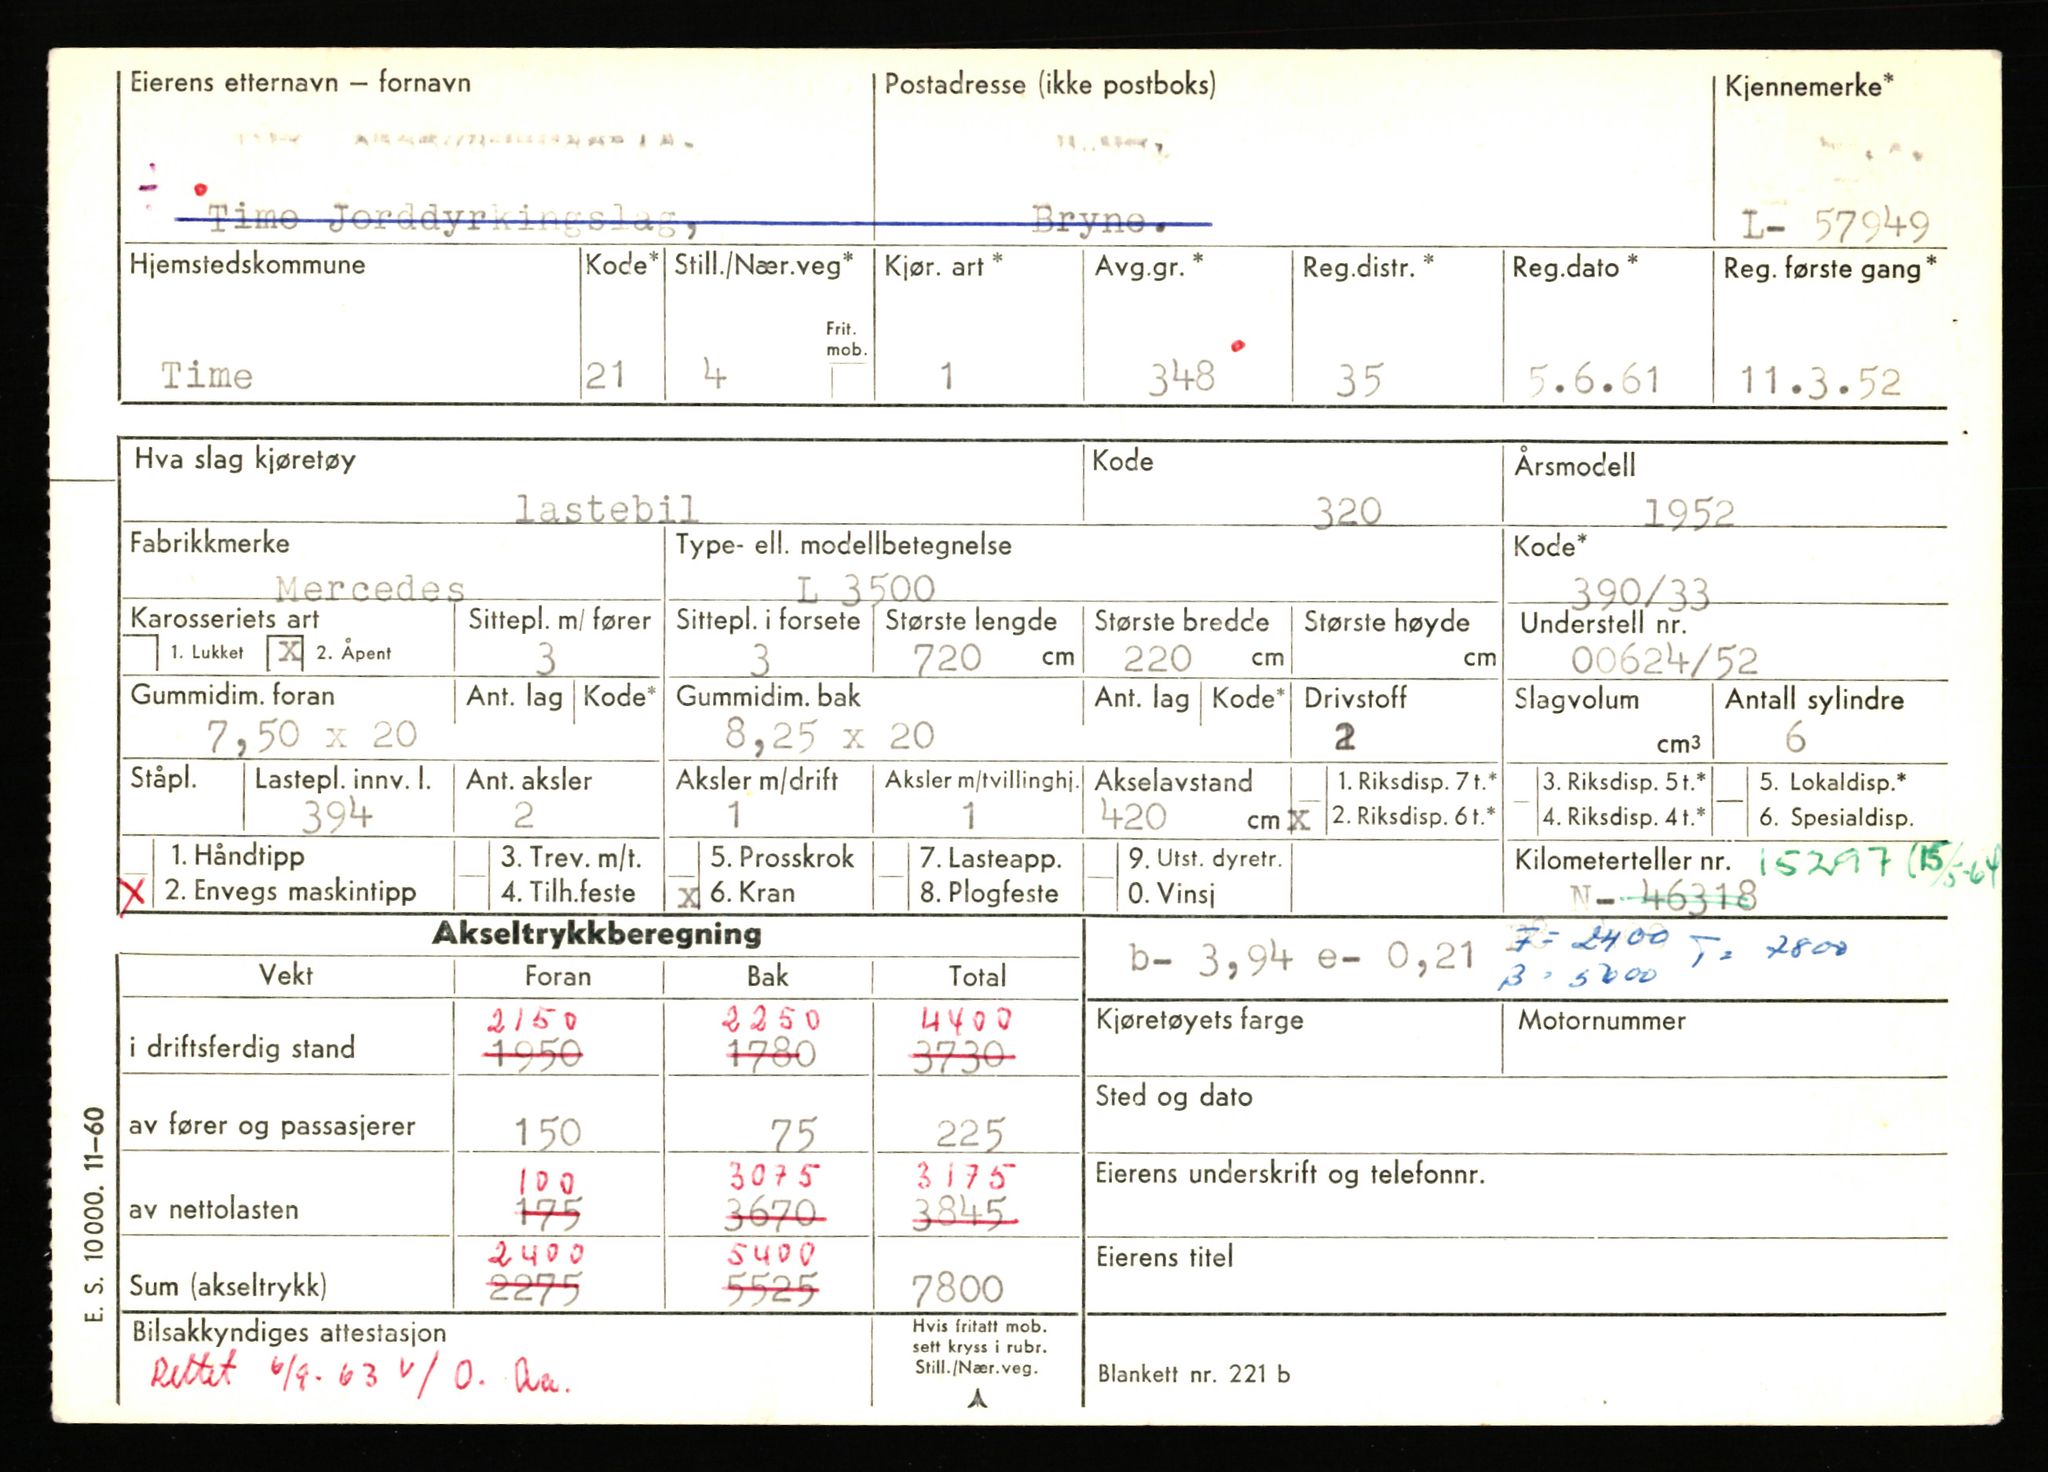 Eierens etternavn – fornavn Postadresse (ikke postboks) Kjennemerke*
Time Jorddyrkingslag, Bryne. L- 57949
Hjemstedskommune Kode* Still./Nær.veg* Kjør. art* Avg.gr.* Reg.distr.* Reg.dato* Reg. første gang*
Frit.
mob.
Time 21 4 1 348 35 5.6.61 11.3.52
Hva slag kjøretøy Kode Årsmodell
lastebil 320 1952
Fabrikkmerke Type- ell. modellbetegnelse Kode*
Mercedes L 3500 390/33
Karosseriets art Sittepl. m/ fører Sittepl. i forsete Største lengde Største bredde Største høyde Understell nr.
1. Lukket X 2. Åpent 3 3 720 cm 220 cm cm 00624/52
Gummidim. foran Ant. lag Kode* Gummidim. bak Ant. lag Kode* Drivstoff Slagvolum Antall sylindre
7,50 x 20 8,25 x 20 2 cm3 6
Ståpl. Lastepl. innv. l. Ant. aksler Aksler m/drift Aksler m/tvillinghj. Akselavstand 1. Riksdisp. 7 t.* 3. Riksdisp. 5 t.* 5. Lokaldisp.*
394 2 1 1 420 cm X 2. Riksdisp. 6 t.* 4. Riksdisp. 4 t.* 6. Spesialdisp.
1. Håndtipp 3. Trev. m/t. 5. Prosskrok 7. Lasteapp. 9. Utst. dyretr. Kilometerteller nr. 15297 (15/5-64)
X 2. Envegs maskintipp 4. Tilh.feste x 6. Kran 8. Plogfeste 0. Vinsj N- 46318
Akseltrykkberegning
b- 3,94 e- 0,21 F= 2400 T= 7800
Vekt Foran Bak Total
2150 2250 4400 Kjøretøyets farge Motornummer
i driftsferdig stand 1950 1780 3730
Sted og dato
av fører og passasjerer 150 75 225
100 3075 3175 Eierens underskrift og telefonnr.
av nettolasten 175 3670 3845
2400 5400 Eierens titel
Sum (akseltrykk) 2275 5525 7800
Bilsakkyndiges attestasjon
Hvis fritatt mob.
sett kryss i rubr.
Still./Nær.veg.
Rettet 6/9-63 v/ O. Aa.
Blankett nr. 221 b
E. S. 10000. 11–60